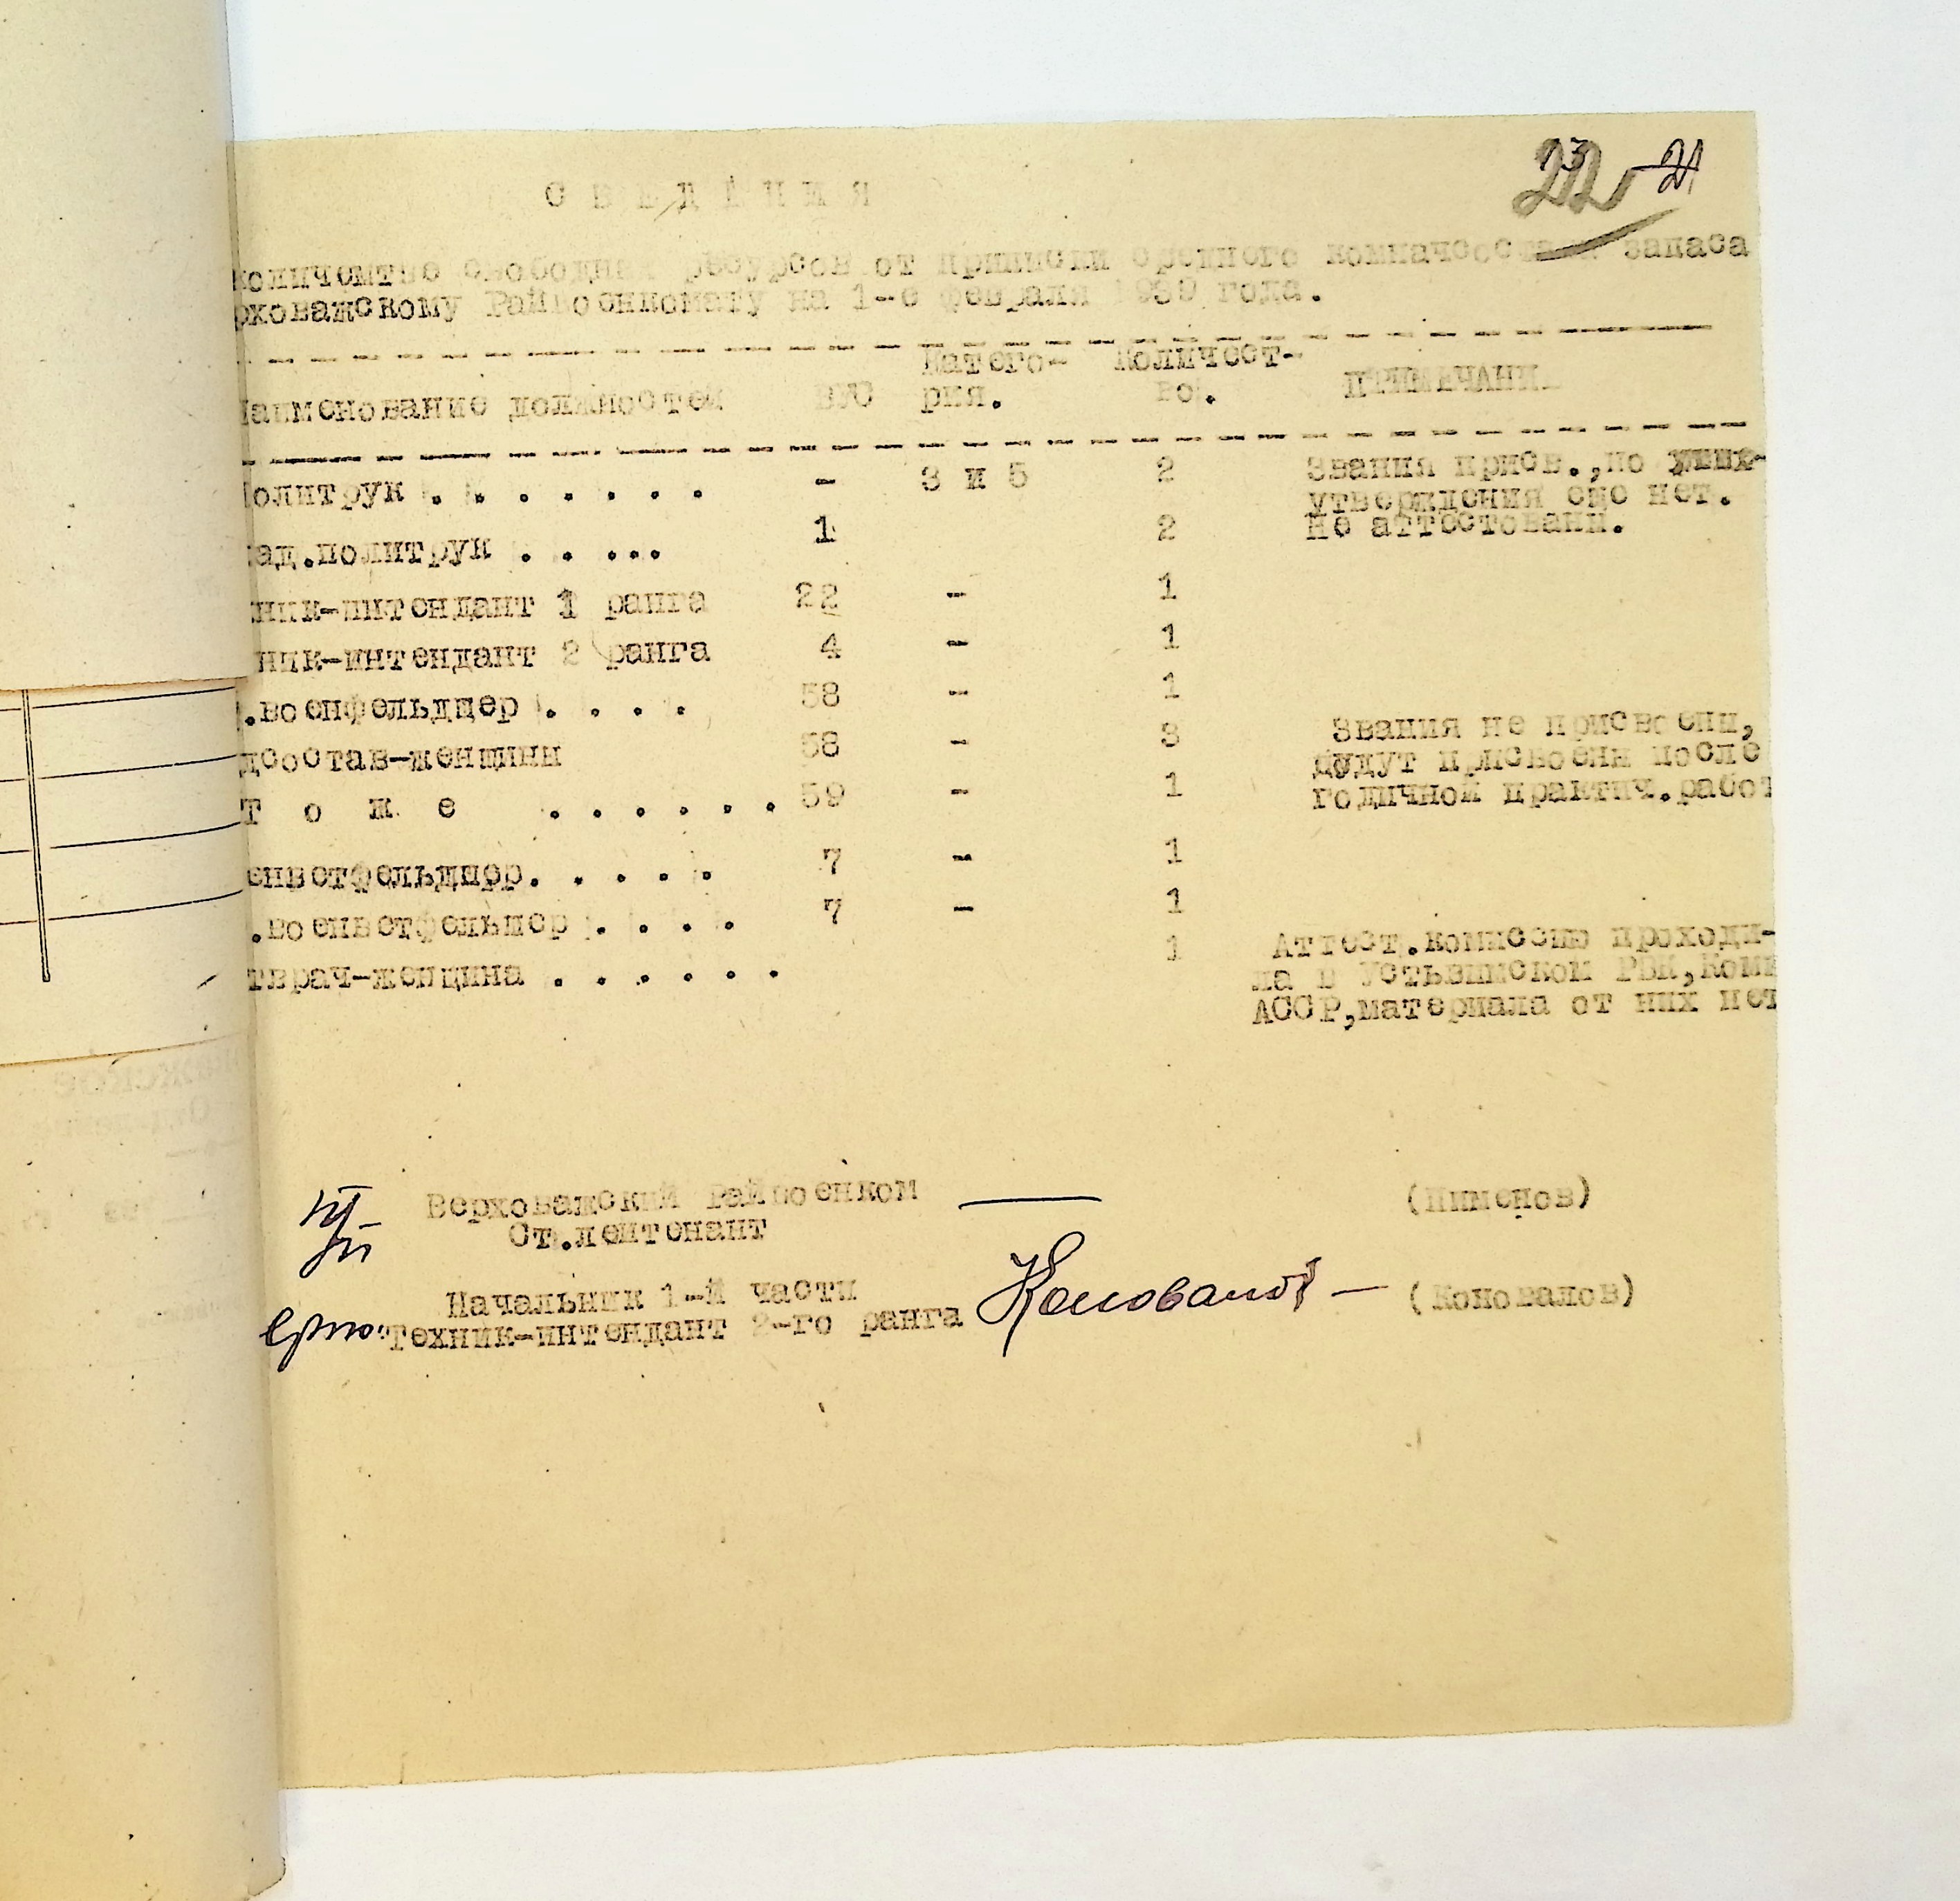 23 22 21
С В Е Д Е Н И Я
количемтво свободных ресурсов от приписки среднего комначсостава запаса
рховажскому Райвоенкомату на 1-е февраля 1939 года.
Наименование должностей ВУС Катего-рия. Количест-во. ПРИМЕЧАНИЕ
олитрук . . . . . . . - 3 и 5 2 Звания присв.,но
утверждения еще нет.
ад.политрук . . ... 1 2 Не аттестованы.
ник-интендант 1 ранга 22 - 1
ник-интендант 2 ранга 4 - 1
.военфельдшер . . . . 58 - 1
дсостав-женщины 58 - 3 Звания не присвоены,
будут присвоены после
Т о ж е . . . . . . 59 - 1 годичной практич.работ
енветфельдшер. . . . . 7 - 1
.военветфельдшер . . . . 7 - 1
тврач-женщина . . . . . . 1 Аттест.комиссию проходи-
ла в Устьвымском РВК,Коми
АССР,материала от них нет
Верховажский Райвоенком
Ст.лейтенант (Пименов)
Начальник 1-й части
Техник-интендант 2-го ранга Коновалов (Коновалов)